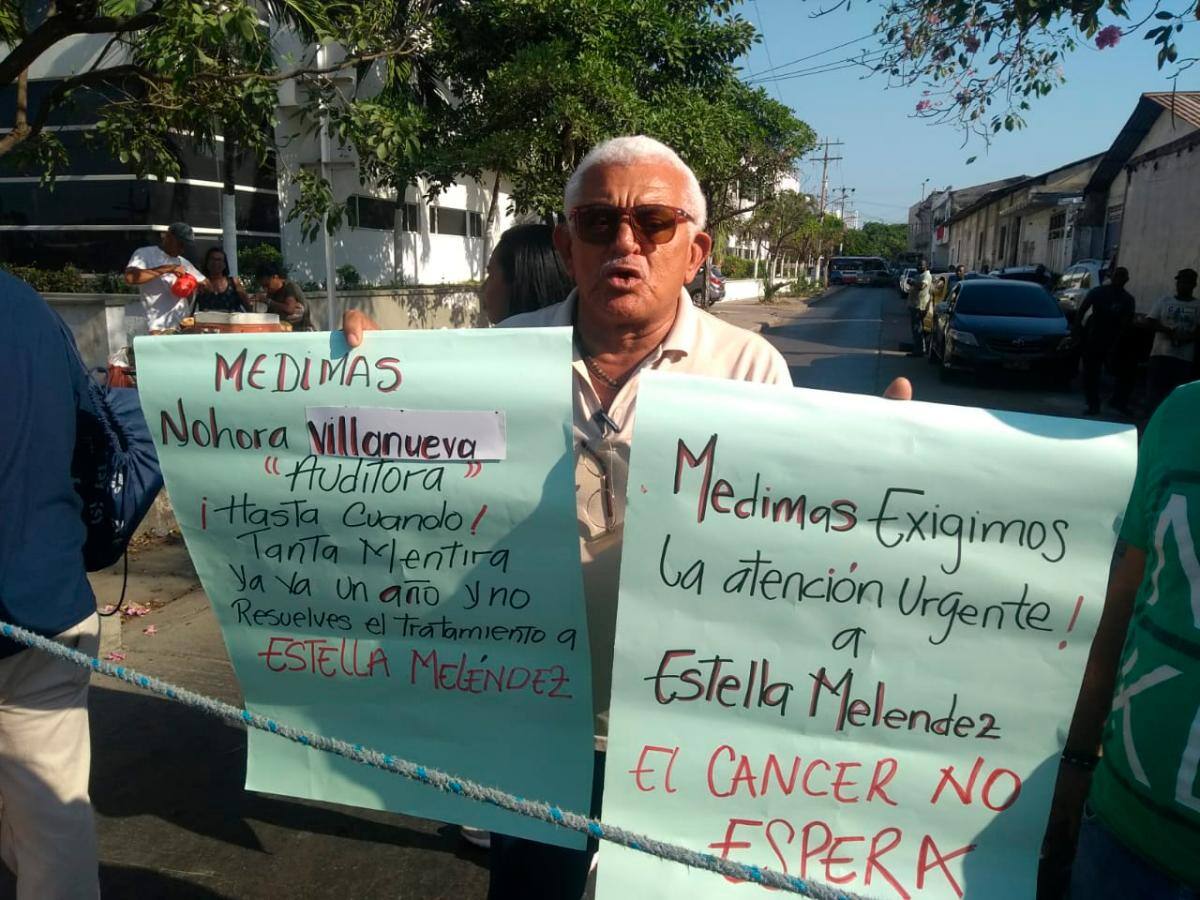 MEDIMAS
Nohora Villanueva
"Auditora"
¡Hasta Cuando!
Tanta Mentira
ya va un año y no
Resuelves el tratamiento a
ESTELLA MELÉNDEZ
Medimas Exigimos
La atención Urgente!
a
Estella Melendez
El CANCER NO
ESPERA